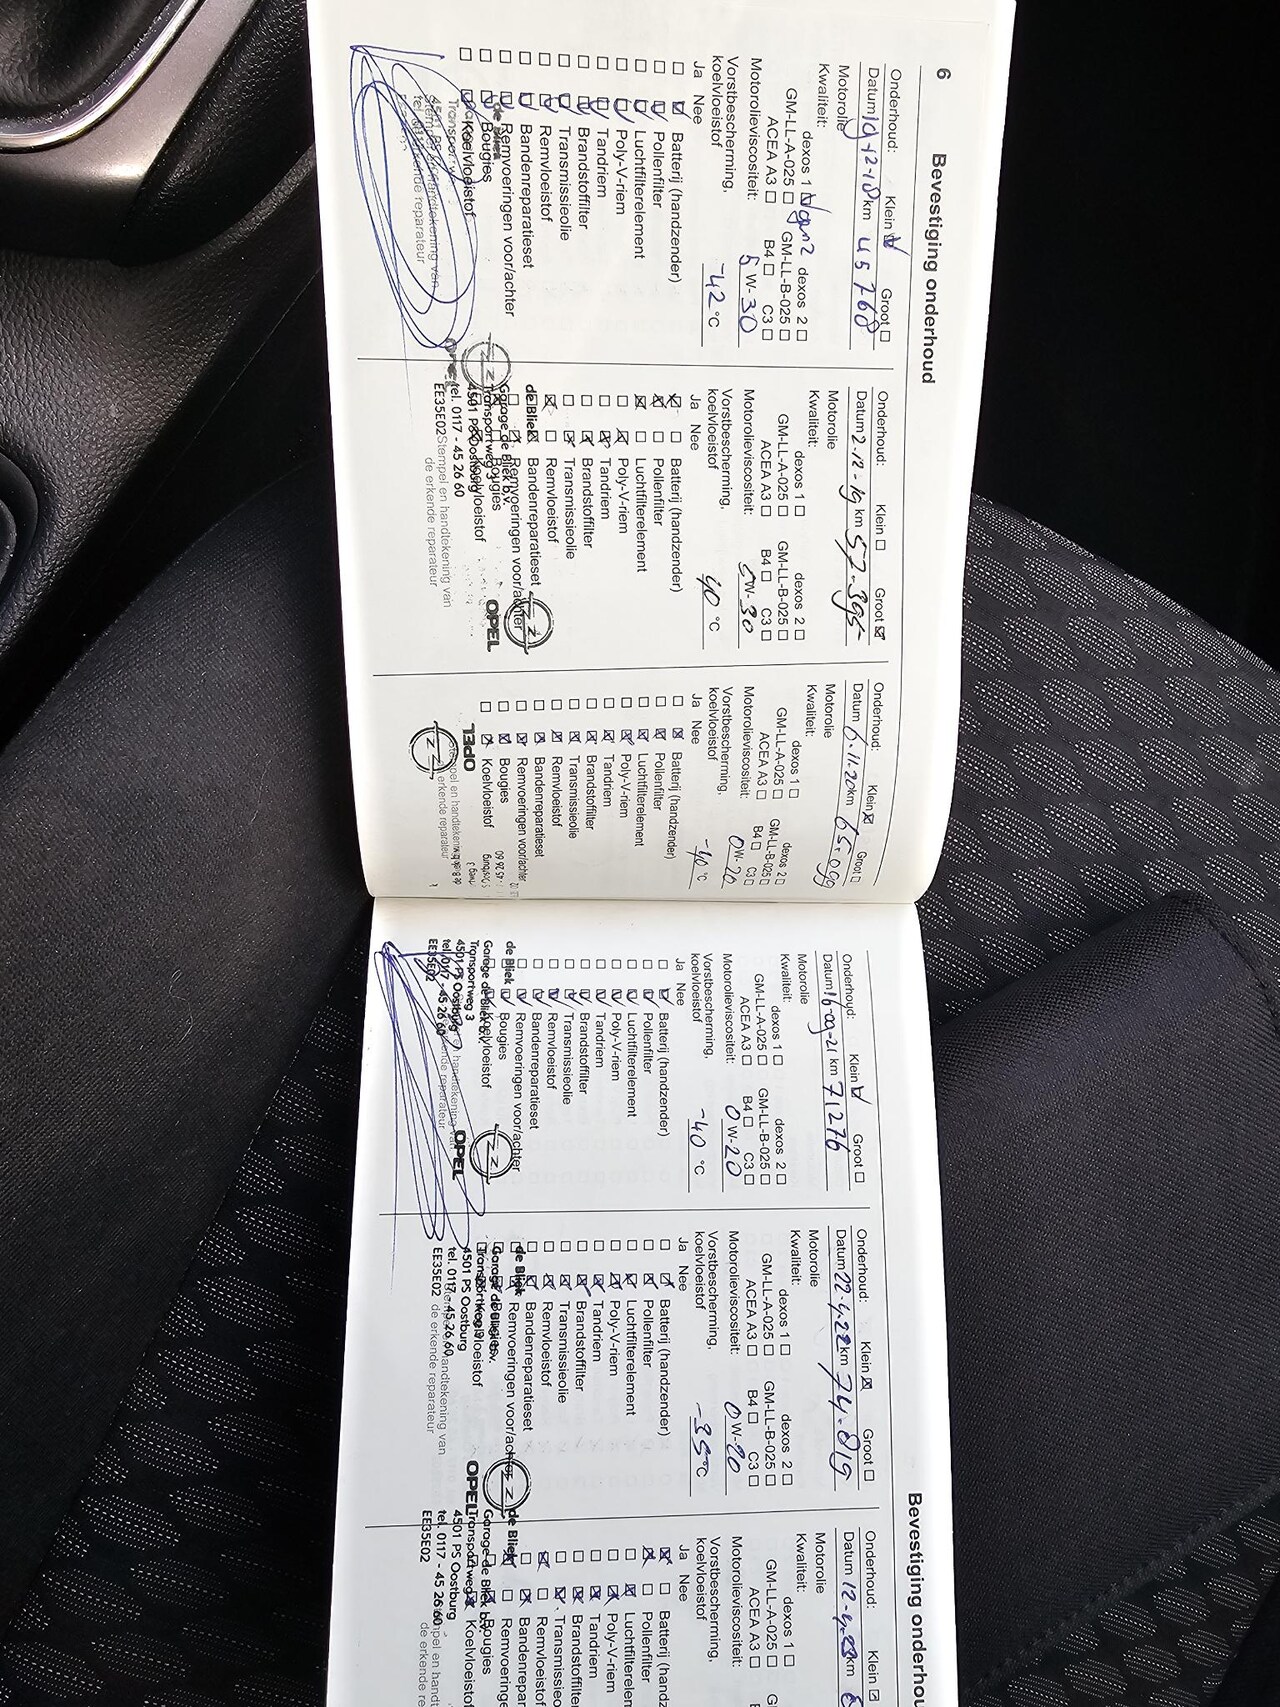 6
Bevestiging onderhoud
Onderhoud: Klein Groot
Datum 10-12-18 km 45768
Motorolie
Kwaliteit: dexos 1 dexos 2
GM-LL-A-025 GM-LL-B-025
ACEA A3 B4 C3
Motorolieviscositeit: 5 W- 30
Vorstbescherming,
koelvloeistof -42 °C
Ja Nee
Batterij (handzender)
Pollenfilter
Luchtfilterelement
Poly-V-riem
Tandriem
Brandstoffilter
Transmissieolie
Remvloeistof
Bandenreparatieset
Remvoeringen voor/achter
Bougies
Koelvloeistof
de Bliek
Stempel en handtekening van
de erkende reparateur
Onderhoud: Klein Groot
Datum 2-12-19 km 57-395
Motorolie
Kwaliteit: dexos 1 dexos 2
GM-LL-A-025 GM-LL-B-025
ACEA A3 B4 C3
Motorolieviscositeit: 5 W- 30
Vorstbescherming,
koelvloeistof 40 °C
Ja Nee
Batterij (handzender)
Pollenfilter
Luchtfilterelement
Poly-V-riem
Tandriem
Brandstoffilter
Transmissieolie
Remvloeistof
Bandenreparatieset
Remvoeringen voor/achter
Bougies
Koelvloeistof
de Bliek
Garage de Bliek b.v.
Transportweg 3
4501 PS Oostburg
tel. 0117 - 45 26 60
EE35E02
OPEL
Stempel en handtekening van
de erkende reparateur
Onderhoud: Klein Groot
Datum 6-11-20 km 65.099
Motorolie
Kwaliteit: dexos 1 dexos 2
GM-LL-A-025 GM-LL-B-025
ACEA A3 B4 C3
Motorolieviscositeit: 0 W- 20
Vorstbescherming,
koelvloeistof -40 °C
Ja Nee
Batterij (handzender)
Pollenfilter
Luchtfilterelement
Poly-V-riem
Tandriem
Brandstoffilter
Transmissieolie
Remvloeistof
Bandenreparatieset
Remvoeringen voor/achter
Bougies
Koelvloeistof
OPEL
Stempel en handtekening van
de erkende reparateur
Bevestiging onderhou
Onderhoud: Klein Groot
Datum 16-09-21 km 71276
Motorolie
Kwaliteit: dexos 1 dexos 2
GM-LL-A-025 GM-LL-B-025
ACEA A3 B4 C3
Motorolieviscositeit: 0 W-20
Vorstbescherming,
koelvloeistof -40 °C
Ja Nee
Batterij (handzender)
Pollenfilter
Luchtfilterelement
Poly-V-riem
Tandriem
Brandstoffilter
Transmissieolie
Remvloeistof
Bandenreparatieset
Remvoeringen voor/achter
Bougies
Koelvloeistof
de Bliek
Garage de Bliek b.v.
Transportweg 3
4501 PS Oostburg
tel. 0117 - 45 26 60
EE35E02
OPEL
Stempel en handtekening van
de erkende reparateur
Onderhoud: Klein Groot
Datum 22-4-22 km 74.819
Motorolie
Kwaliteit: dexos 1 dexos 2
GM-LL-A-025 GM-LL-B-025
ACEA A3 B4 C3
Motorolieviscositeit: 0 W- 20
Vorstbescherming,
koelvloeistof -35 °C
Ja Nee
Batterij (handzender)
Pollenfilter
Luchtfilterelement
Poly-V-riem
Tandriem
Brandstoffilter
Transmissieolie
Remvloeistof
Bandenreparatieset
Remvoeringen voor/achter
Bougies
Koelvloeistof
de Bliek
Garage de Bliek b.v.
Transportweg 3
4501 PS Oostburg
tel. 0117 - 45 26 60
EE35E02
OPEL
Stempel en handtekening van
de erkende reparateur
Onderhoud: Klein
Datum 12-4-23 km
Motorolie
Kwaliteit: dexos 1
GM-LL-A-025
ACEA A3
Motorolieviscositeit:
Vorstbescherming,
koelvloeistof
Ja Nee
Batterij (handz
Pollenfilter
Luchtfilterelen
Poly-V-riem
Tandriem
Brandstoffilter
Transmissieo
Remvloeistof
Bandenrepar
Remvoeringe
Bougies
Koelvloeistof
de Bliek
Garage de Bliek b.v.
Transportweg 3
4501 PS Oostburg
tel. 0117 - 45 26 60
EE35E02
Stempel en handt
de erkende re